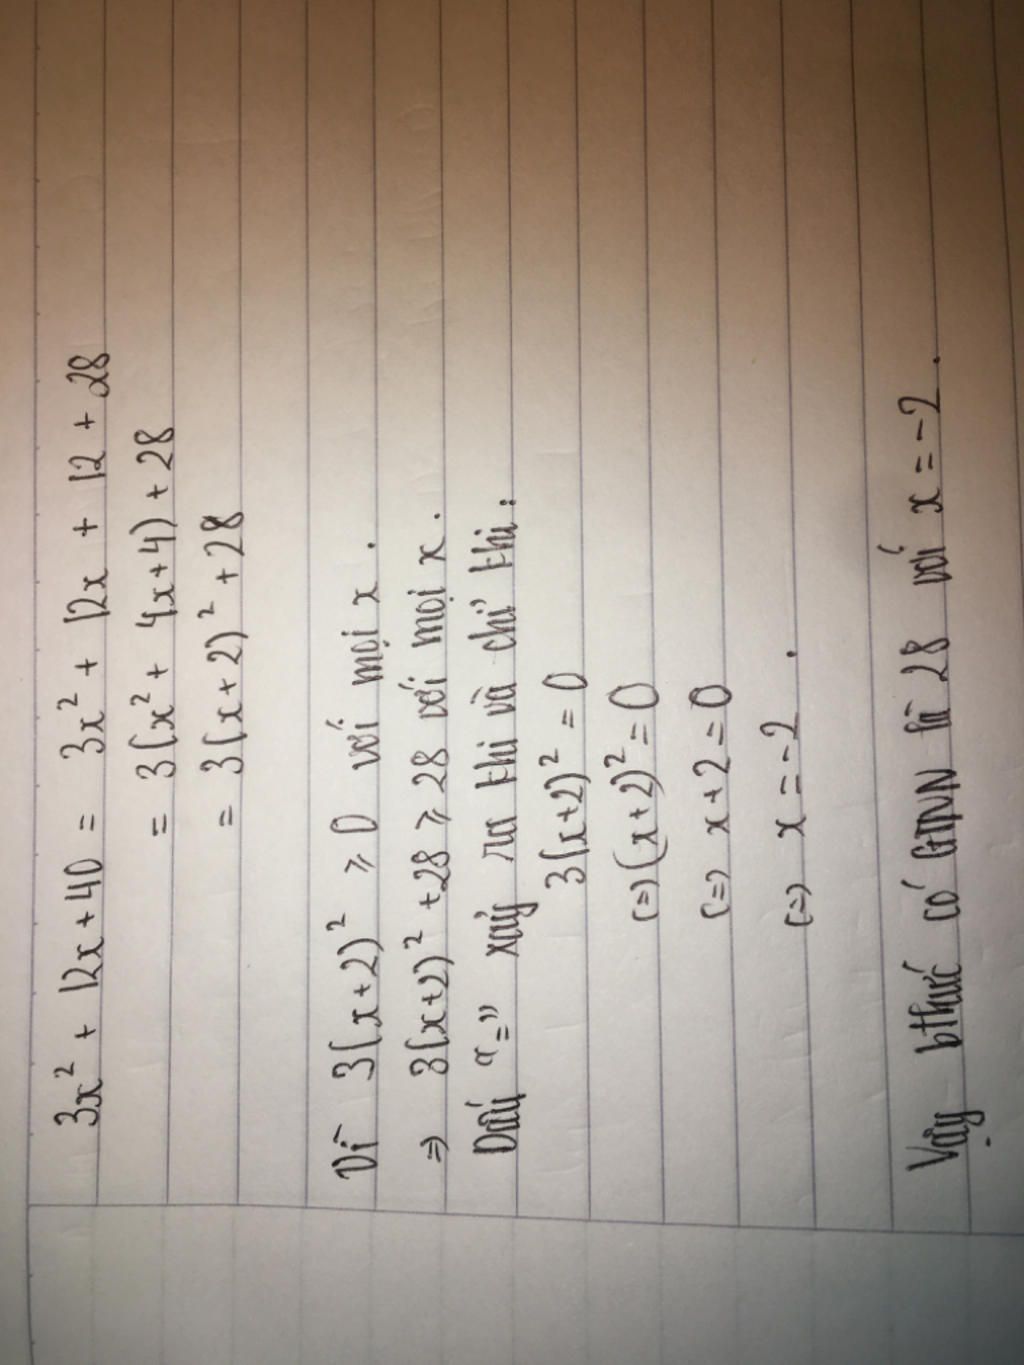 3x² + 12x + 40 = 3x² + 12x + 12 + 28
= 3(x² + 4x + 4) + 28
= 3(x + 2)² + 28
Vì 3(x + 2)² ⩾ 0 với mọi x.
⇒ 3(x + 2)² + 28 ⩾ 28 với mọi x.
Dấu "=" xảy ra khi và chỉ khi:
3(x + 2)² = 0
(=) (x + 2)² = 0
(=) x + 2 = 0
(=) x = -2.
Vậy bthức có GTNN là 28 với x = -2.